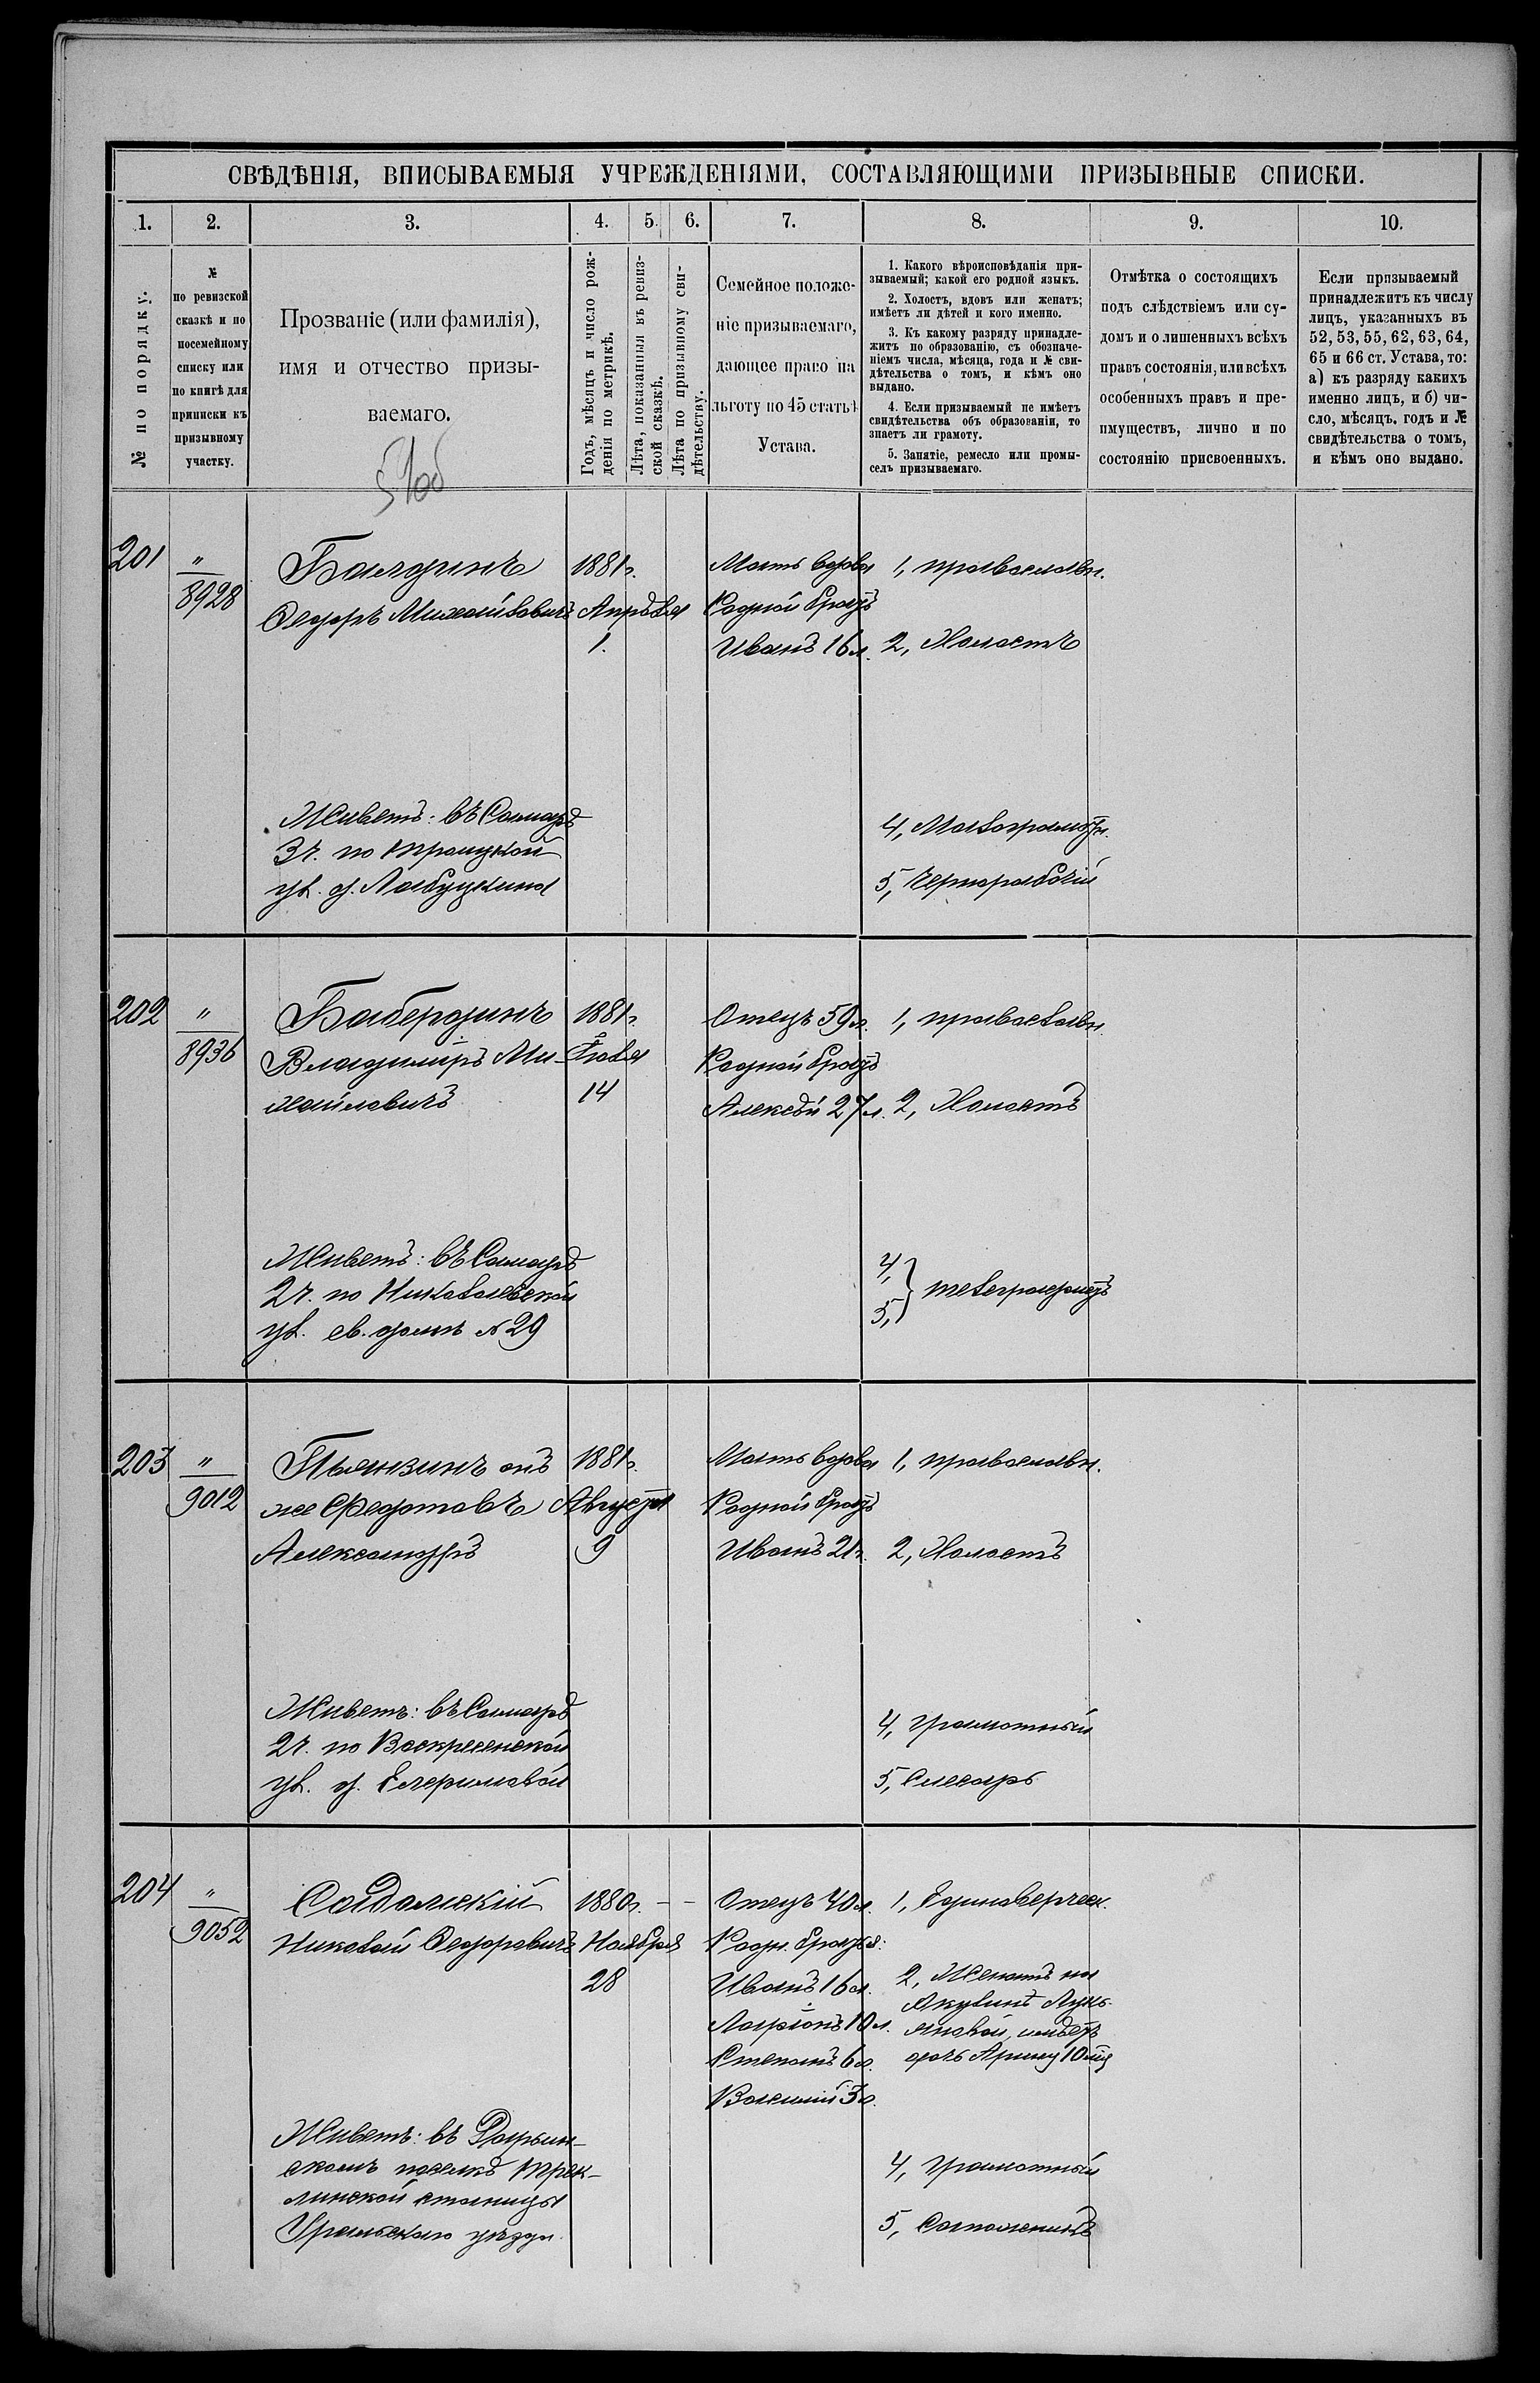 СВѢДѢНІЯ, ВПИСЫВАЕМЫЯ УЧРЕЖДЕНІЯМИ, СОСТАВЛЯЮЩИМИ ПРИЗЫВНЫЕ СПИСКИ.
1.
2.
3.
4.
5.
6.
7.
8.
9.
10.
№ по порядку.
№
по ревизской
сказкѣ и по
посемейному
списку или
по книгѣ для
приписки къ
призывному
участку.
Прозваніе (или фамилія),
имя и отчество призы-
ваемаго.
Годъ, мѣсяцъ и число рож-
денія по метрикѣ.
Лѣта, показанныя въ ревиз-
ской сказкѣ.
Лѣта по призывному сви-
дѣтельству.
Семейное положе-
ніе призываемаго,
дающее право на
льготу по 45 статьѣ
Устава.
1. Какого вѣроисповѣданія при-
зываемый; какой его родной языкъ.
2. Холостъ, вдовъ или женатъ;
имѣетъ ли дѣтей и кого именно.
3. Къ какому разряду принадле-
житъ по образованію, съ обозначе-
ніемъ числа, мѣсяца, года и № сви-
дѣтельства о томъ, и кѣмъ оно
выдано.
4. Если призываемый не имѣетъ
свидѣтельства объ образованіи, то
знаетъ ли грамоту.
5. Занятіе, ремесло или промы-
селъ призываемаго.
Отмѣтка о состоящихъ
подъ слѣдствіемъ или су-
домъ и о лишенныхъ всѣхъ
правъ состоянія, или всѣхъ
особенныхъ правъ и пре-
имуществъ, лично и по
состоянію присвоенныхъ.
Если призываемый
принадлежитъ къ числу
лицъ, указанныхъ въ
52, 53, 55, 62, 63, 64,
65 и 66 ст. Устава, то:
а) къ разряду какихъ
именно лицъ, и б) чи-
сло, мѣсяцъ, годъ и №
свидѣтельства о томъ,
и кѣмъ оно выдано.
201
"
8928
Балдинъ
Ѳедоръ Михайловичъ
1881г.
Апрѣля
1.
Мать вдова
Родной братъ
Иванъ 16 л.
1, православн.
2, Холостъ
Живетъ: въ Самарѣ
3 ч. по Троицкой
ул. д. Лабуцкина
4, Малограмотн.
5, Чернорабочій
202
"
8936
Бабердинъ
Владиміръ Ми-
хайловичъ
1881г.
Іюля
14
Отецъ 59 л.
Родной братъ
Алексѣй 27 л.
1, православн.
2, Холостъ
Живетъ: въ Самарѣ
2 ч. по Николаевской
ул. св. домъ № 29
4,
5, телеграфистъ
203
"
9012
Пьянзинъ онъ
же Ѳедотовъ
Александръ
1881г.
Августа
9
Мать вдова
Родной братъ
Иванъ 21 г.
1, православн.
2, Холостъ
Живетъ: въ Самарѣ
2 ч. по Воскресенской
ул. д.
4, грамотный
5, Слесарь
204
"
9052
Николай Ѳедоровичъ
1880г. – –
Ноября
28
Отецъ 40 л.
Родн. братья:
Иванъ 16 л.
Ларіонъ 10 л.
Степанъ 6 л.
Василій 3 л.
1, Единоверческ.
2, Женатъ на
Акулинѣ Лукь-
яновой, имѣетъ
дочь Арину 10 мц
Живетъ: въ Дарьин-
скомъ поселкѣ Трек-
линской станицы
Уральскаго уѣзда
4, грамотный
5, Сапожникъ